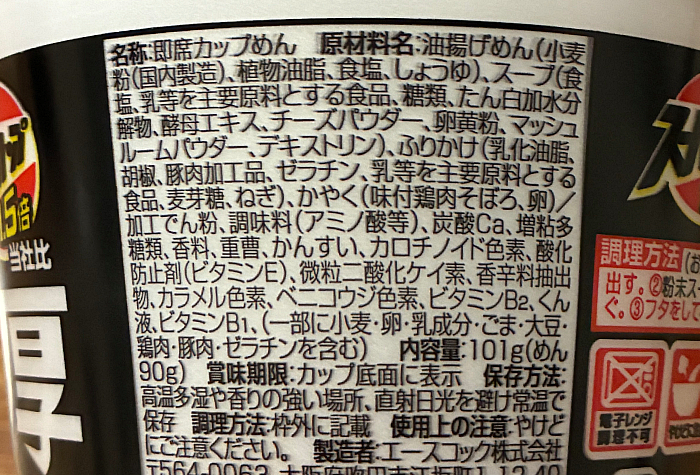 名称:即席カップめん 原材料名:油揚げめん(小麦
粉(国内製造)、植物油脂、食塩、しょうゆ)、スープ(食
塩、乳等を主要原料とする食品、糖類、たん白加水分
解物、酵母エキス、チーズパウダー、卵黄粉、マッシュ
ルームパウダー、デキストリン)、ふりかけ(乳化油脂、
胡椒、豚肉加工品、ゼラチン、乳等を主要原料とする
食品、麦芽糖、ねぎ)、かやく(味付鶏肉そぼろ、卵)/
加工でん粉、調味料(アミノ酸等)、炭酸Ca、増粘多
糖類、香料、重曹、かんすい、カロチノイド色素、酸化
防止剤(ビタミンE)、微粒二酸化ケイ素、香辛料抽出
物、カラメル色素、ベニコウジ色素、ビタミンB2、くん
液、ビタミンB1、(一部に小麦・卵・乳成分・ごま・大豆・
鶏肉・豚肉・ゼラチンを含む) 内容量:101g(めん
90g) 賞味期限:カップ底面に表示 保存方法:
高温多湿や香りの強い場所、直射日光を避け常温で
保存 調理方法:枠外に記載 使用上の注意:やけど
にご注意ください。 製造者:エースコック株式会社
1.5倍
当社比
厚
調理方法(お
出す。②粉末ス
ぐ。③フタをして
電子レンジ
調理不可